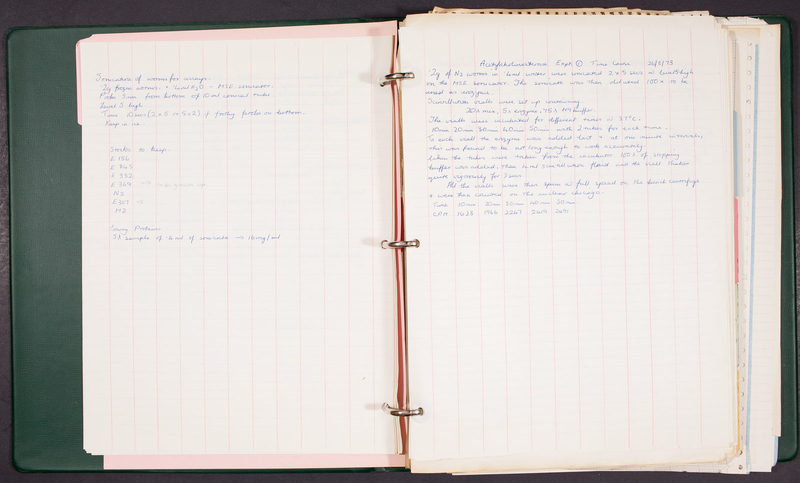 Sonication of worms for assays.
2g frozen worms + 4ml H2O - MSE sonicator.
Probe 3mm from bottom of 10ml conical tube.
Level 5 high
Time 10 secs (2 x 5 or 5 x 2) if frothy probe on bottom.
Keep in ice.
Stocks to keep
E 156
E 345
E 352
E 369
N2
E307
M2
Lowry Protein
5λ sample of 4ml of sonicate → 16mg/ml
Acetylcholinesterase Expt ① Time Course 26/3/73
2g of N2 worms in 4ml water were sonicated 2 x 5 secs at level 5 high
on the MSE sonicator. The sonicate was then diluted 100x to be
used as enzyme.
Scintillation vials were set up containing
20λ mix, 5λ enzyme, 75λ buffer.
The vials were incubated for different times at 37°C.
10min 20min 30min 40min 50min with 2 tubes for each time.
To each vial the enzyme was added last & at one minute intervals,
this was found to be not long enough to work accurately.
When the tubes were taken from the incubator 100λ of stopping
buffer was added, then 4ml scintillation fluid and the vial shaken
quite vigorously for 3 secs.
All the vials were then spun at full speed on the bench centrifuge
& were then counted on the nuclear chicago.
Time 10min 20min 30min 40min 50min
CPM 1628 1966 2267 2609 2691